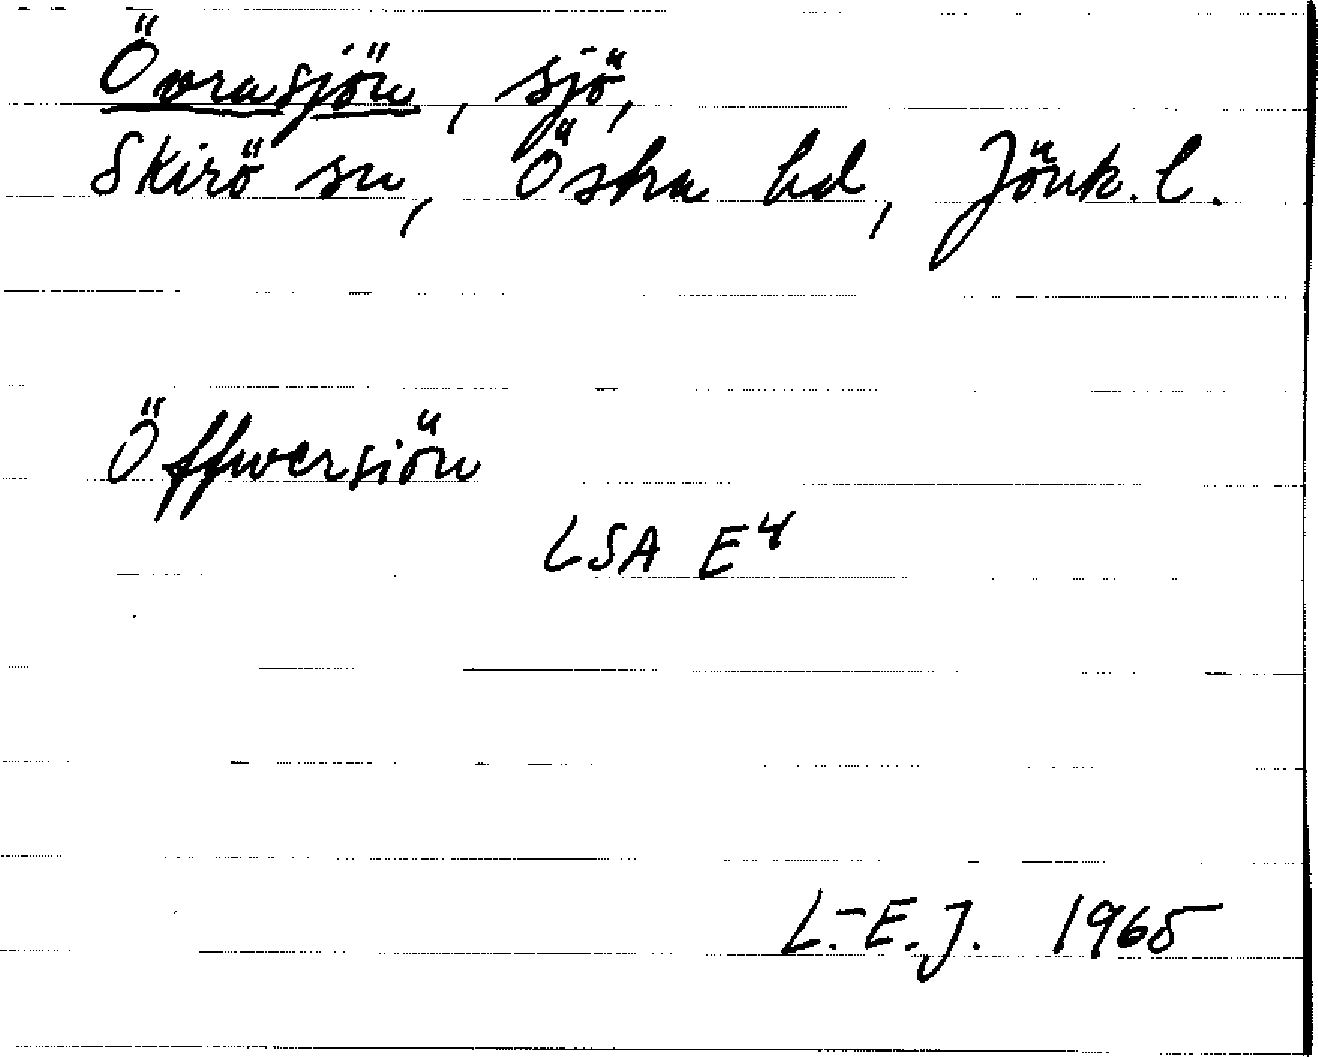 Övrasjön, sjö,
Skirö sn, Östra hd, Jönk. l.
Öffwersiön
LSA E4
L.-E.J. 1965